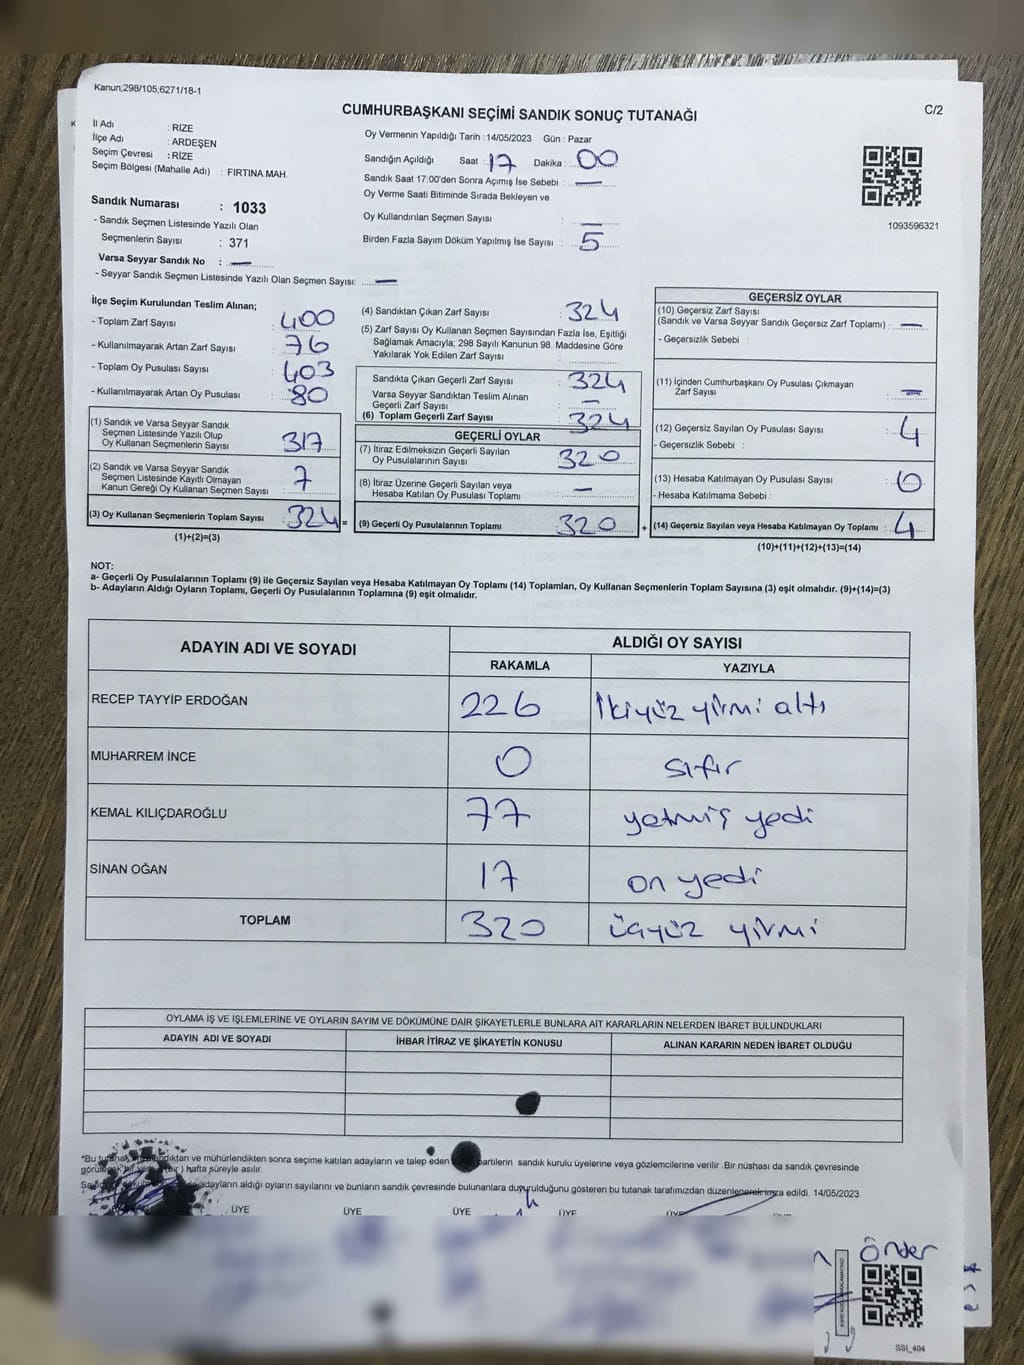 Kanun;298/105,6271/18-1
C/2
CUMHURBAŞKANI SEÇİMİ SANDIK SONUÇ TUTANAĞI
İl Adı : RİZE
İlçe Adı : ARDEŞEN
Seçim Çevresi : RİZE
Seçim Bölgesi (Mahalle Adı) : FIRTINA MAH.
Sandık Numarası : 1033
- Sandık Seçmen Listesinde Yazılı Olan
Seçmenlerin Sayısı : 371
Varsa Seyyar Sandık No : —
- Seyyar Sandık Seçmen Listesinde Yazılı Olan Seçmen Sayısı: —
Oy Vermenin Yapıldığı Tarih : 14/05/2023 Gün : Pazar
Sandığın Açıldığı Saat : 17 Dakika : 00
Sandık Saat 17:00'den Sonra Açımış İse Sebebi : —
Oy Verme Saati Bitiminde Sırada Bekleyen ve
Oy Kullandırılan Seçmen Sayısı : —
Birden Fazla Sayım Döküm Yapılmış İse Sayısı : 5
1093596321
İlçe Seçim Kurulundan Teslim Alınan;
- Toplam Zarf Sayısı : 400
- Kullanılmayarak Artan Zarf Sayısı : 76
- Toplam Oy Pusulası Sayısı : 403
- Kullanılmayarak Artan Oy Pusulası : 80
(1) Sandık ve Varsa Seyyar Sandık
Seçmen Listesinde Yazılı Olup
Oy Kullanan Seçmenlerin Sayısı : 317
(2) Sandık ve Varsa Seyyar Sandık
Seçmen Listesinde Kayıtlı Olmayan
Kanun Gereği Oy Kullanan Seçmen Sayısı : 7
(3) Oy Kullanan Seçmenlerin Toplam Sayısı : 324 =
(1)+(2)=(3)
(4) Sandıktan Çıkan Zarf Sayısı : 324
(5) Zarf Sayısı Oy Kullanan Seçmen Sayısından Fazla İse, Eşitliği
Sağlamak Amacıyla; 298 Sayılı Kanunun 98. Maddesine Göre
Yakılarak Yok Edilen Zarf Sayısı :
Sandıkta Çıkan Geçerli Zarf Sayısı : 324
Varsa Seyyar Sandıktan Teslim Alınan
Geçerli Zarf Sayısı : —
(6) Toplam Geçerli Zarf Sayısı : 324
GEÇERLİ OYLAR
(7) İtiraz Edilmeksizin Geçerli Sayılan
Oy Pusulalarının Sayısı : 320
(8) İtiraz Üzerine Geçerli Sayılan veya
Hesaba Katılan Oy Pusulası Toplamı : —
(9) Geçerli Oy Pusulalarının Toplamı : 320 +
GEÇERSİZ OYLAR
(10) Geçersiz Zarf Sayısı
(Sandık ve Varsa Seyyar Sandık Geçersiz Zarf Toplamı) : —
- Geçersizlik Sebebi :
(11) İçinden Cumhurbaşkanı Oy Pusulası Çıkmayan
Zarf Sayısı : —
(12) Geçersiz Sayılan Oy Pusulası Sayısı : 4
- Geçersizlik Sebebi :
(13) Hesaba Katılmayan Oy Pusulası Sayısı : 0
- Hesaba Katılmama Sebebi :
(14) Geçersiz Sayılan veya Hesaba Katılmayan Oy Toplamı : 4
(10)+(11)+(12)+(13)=(14)
NOT:
a- Geçerli Oy Pusulalarının Toplamı (9) ile Geçersiz Sayılan veya Hesaba Katılmayan Oy Toplamı (14) Toplamları, Oy Kullanan Seçmenlerin Toplam Sayısına (3) eşit olmalıdır. (9)+(14)=(3)
b- Adayların Aldığı Oyların Toplamı, Geçerli Oy Pusulalarının Toplamına (9) eşit olmalıdır.
ADAYIN ADI VE SOYADI ALDIĞI OY SAYISI
RAKAMLA YAZIYLA
RECEP TAYYİP ERDOĞAN 226 İkiyüz yirmi altı
MUHARREM İNCE 0 sıfır
KEMAL KILIÇDAROĞLU 77 yetmiş yedi
SİNAN OĞAN 17 on yedi
TOPLAM 320 üçyüz yirmi
OYLAMA İŞ VE İŞLEMLERİNE VE OYLARIN SAYIM VE DÖKÜMÜNE DAİR ŞİKAYETLERLE BUNLARA AİT KARARLARIN NELERDEN İBARET BULUNDUKLARI
ADAYIN ADI VE SOYADI İHBAR İTİRAZ VE ŞİKAYETİN KONUSU ALINAN KARARIN NEDEN İBARET OLDUĞU
*Bu mühürlendikten sonra seçime katılan adayların ve talep eden partilerin sandık kurulu üyelerine veya gözlemcilerine verilir .Bir nüshası da sandık çevresinde
) hafta süreyle asılır.
adayların aldığı oyların sayılarını ve bunların sandık çevresinde bulunanlara duyurulduğunu gösteren bu tutanak tarafımızdan düzenlenerek imza edildi. 14/05/2023
ÜYE ÜYE ÜYE ÜYE
Önder
SSI_404